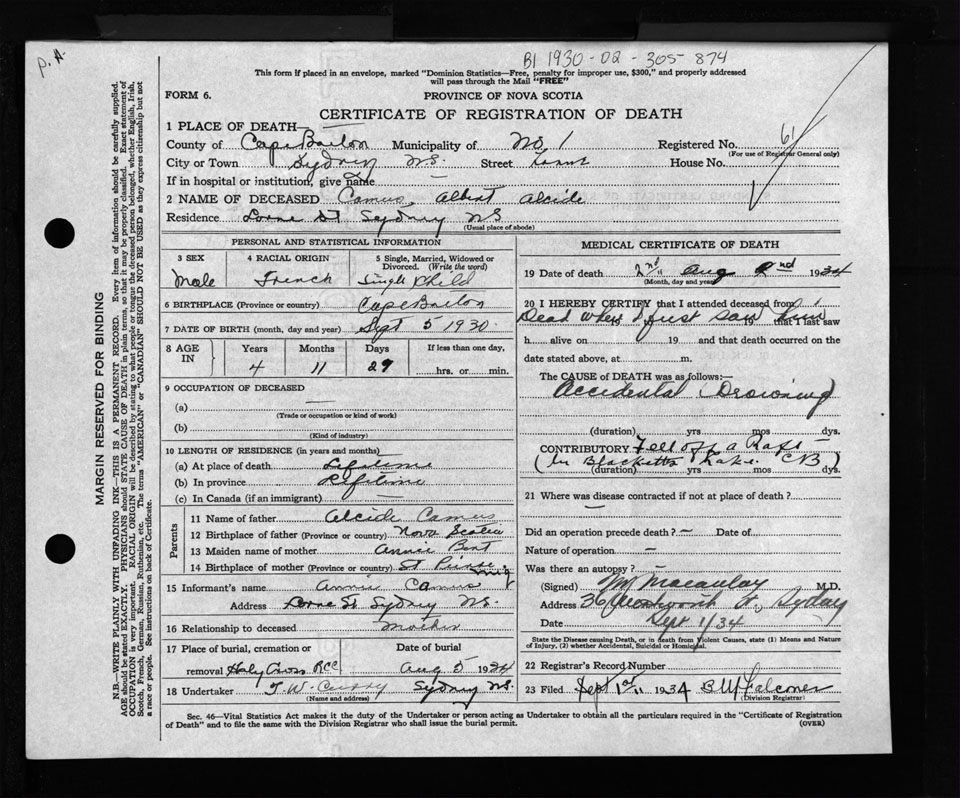 P.A.
B1 1930-02-305-874
This form if placed in an envelope, marked "Dominion Statistics—Free, penalty for improper use, $300," and properly addressed
will pass through the Mail "FREE"
FORM 6.
PROVINCE OF NOVA SCOTIA
CERTIFICATE OF REGISTRATION OF DEATH
1 PLACE OF DEATH—
County of Cape Breton Municipality of No. 1 Registered No. 61
(For use of Registrar General only)
City or Town Sydney N.S. Street House No.
If in hospital or institution, give name —
2 NAME OF DECEASED Camus, Albert Alcide
Residence Lorne St Sydney NS
(Usual place of abode)
PERSONAL AND STATISTICAL INFORMATION
3 SEX 4 RACIAL ORIGIN 5 Single, Married, Widowed or Divorced. (Write the word)
Male French Single Child
6 BIRTHPLACE (Province or country) Cape Breton
7 DATE OF BIRTH (month, day and year) Sept 5 1930.
8 AGE IN Years Months Days If less than one day,
4 11 29 hrs. or min.
9 OCCUPATION OF DECEASED
(a) —
(Trade or occupation or kind of work)
(b)
(Kind of industry)
10 LENGTH OF RESIDENCE (in years and months)
(a) At place of death Lifetime
(b) In province Lifetime
(c) In Canada (if an immigrant) —
Parents
11 Name of father Alcide Camus
12 Birthplace of father (Province or country) Nova Scotia
13 Maiden name of mother Annie
14 Birthplace of mother (Province or country) St Pierre Miq
15 Informant's name Annie Camus
Address Lorne St Sydney N.S.
16 Relationship to deceased Mother
17 Place of burial, cremation or Date of burial
removal Holy Cross RCC Aug 5 1934
18 Undertaker T. W. Curry Sydney N.S.
(Name and address)
MEDICAL CERTIFICATE OF DEATH
19 Date of death 2nd Aug 2nd 1934
(Month, day and year)
20 I HEREBY CERTIFY that I attended deceased from
Dead when I first saw him
19 19 that I last saw
h alive on 19 and that death occurred on the
date stated above, at m.
The CAUSE of DEATH was as follows:—
Accidental Drowning
(duration) yrs mos dys.
CONTRIBUTORY Fell off a Raft
(In Blacketts Lake. CB)
(duration) yrs mos dys.
21 Where was disease contracted if not at place of death?
—
Did an operation precede death? — Date of
Nature of operation —
Was there an autopsy?
(Signed) Macaulay M.D.
Address 36 Wentworth St., Sydney
Date Sept 1/34
State the Disease causing Death, or in death from Violent Causes, state (1) Means and Nature
of Injury, and (2) whether Accidental, Suicidal or Homicidal.
22 Registrar's Record Number
23 Filed Sept 1st 1934 B W Falconer
(Division Registrar)
Sec. 46—Vital Statistics Act makes it the duty of the Undertaker or person acting as Undertaker to obtain all the particulars required in the "Certificate of Registration
of Death" and to file the same with the Division Registrar who shall issue the burial permit.
(OVER)
MARGIN RESERVED FOR BINDING
N.B.—WRITE PLAINLY WITH UNFADING INK—THIS IS A PERMANENT RECORD. Every item of information should be carefully supplied.
AGE should be stated EXACTLY. PHYSICIANS should STATE CAUSE OF DEATH in plain terms, so that it may be properly classified. Exact statement of
OCCUPATION is very important. RACIAL ORIGIN will be described by stating to what people or tongue the deceased person belonged, whether English, Irish,
Scotch, French, German, Russian, Ruthenian, etc. The terms "AMERICAN" or "CANADIAN" SHOULD NOT BE USED as they express citizenship but not
a race or people. See instructions on back of Certificate.